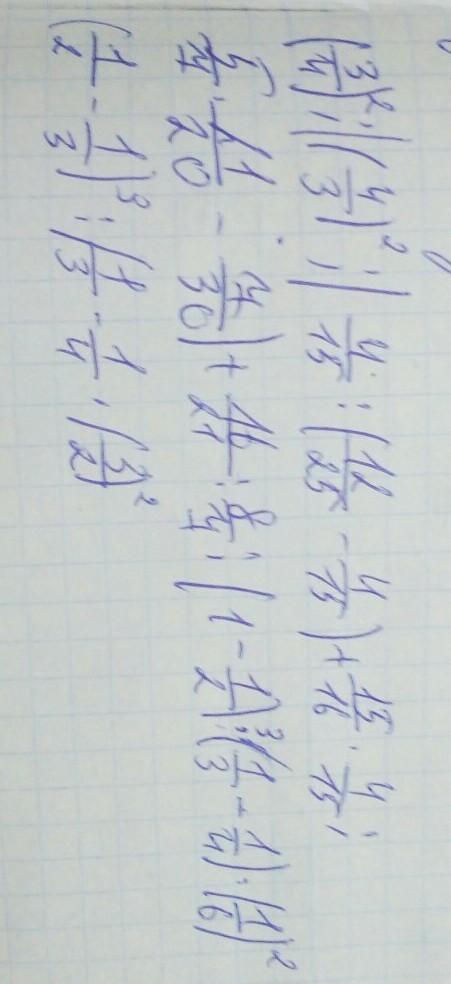 (3/4)²; (4/3)²; 4/15 : (12/25 - 4/15) + 15/16 · 4/15;
5/4 · (11/20 - 4/30) + 16/27 : 8/4; (1 - 1/2)³ : (1/3 - 1/4) · (1/6)²
(1/2 - 1/3)³ : (1/3 - 1/4 · (3/2)²